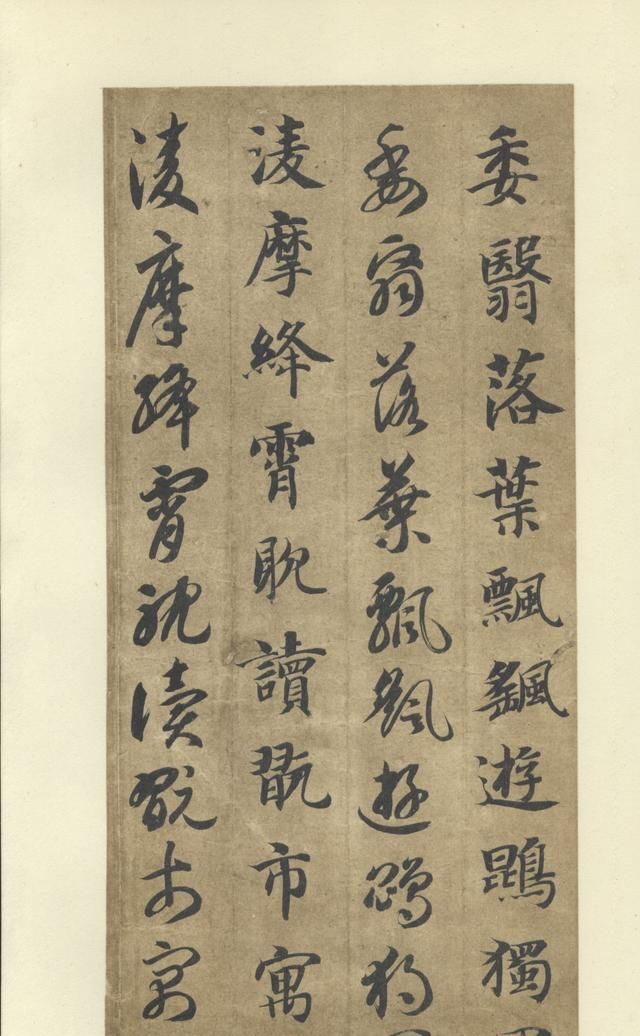 委翳落葉飄颻遊鵾獨
委翳落葉飄颻遊鵾獨
淩摩絳霄耽讀翫市寓
淩摩絳霄耽讀翫市寓